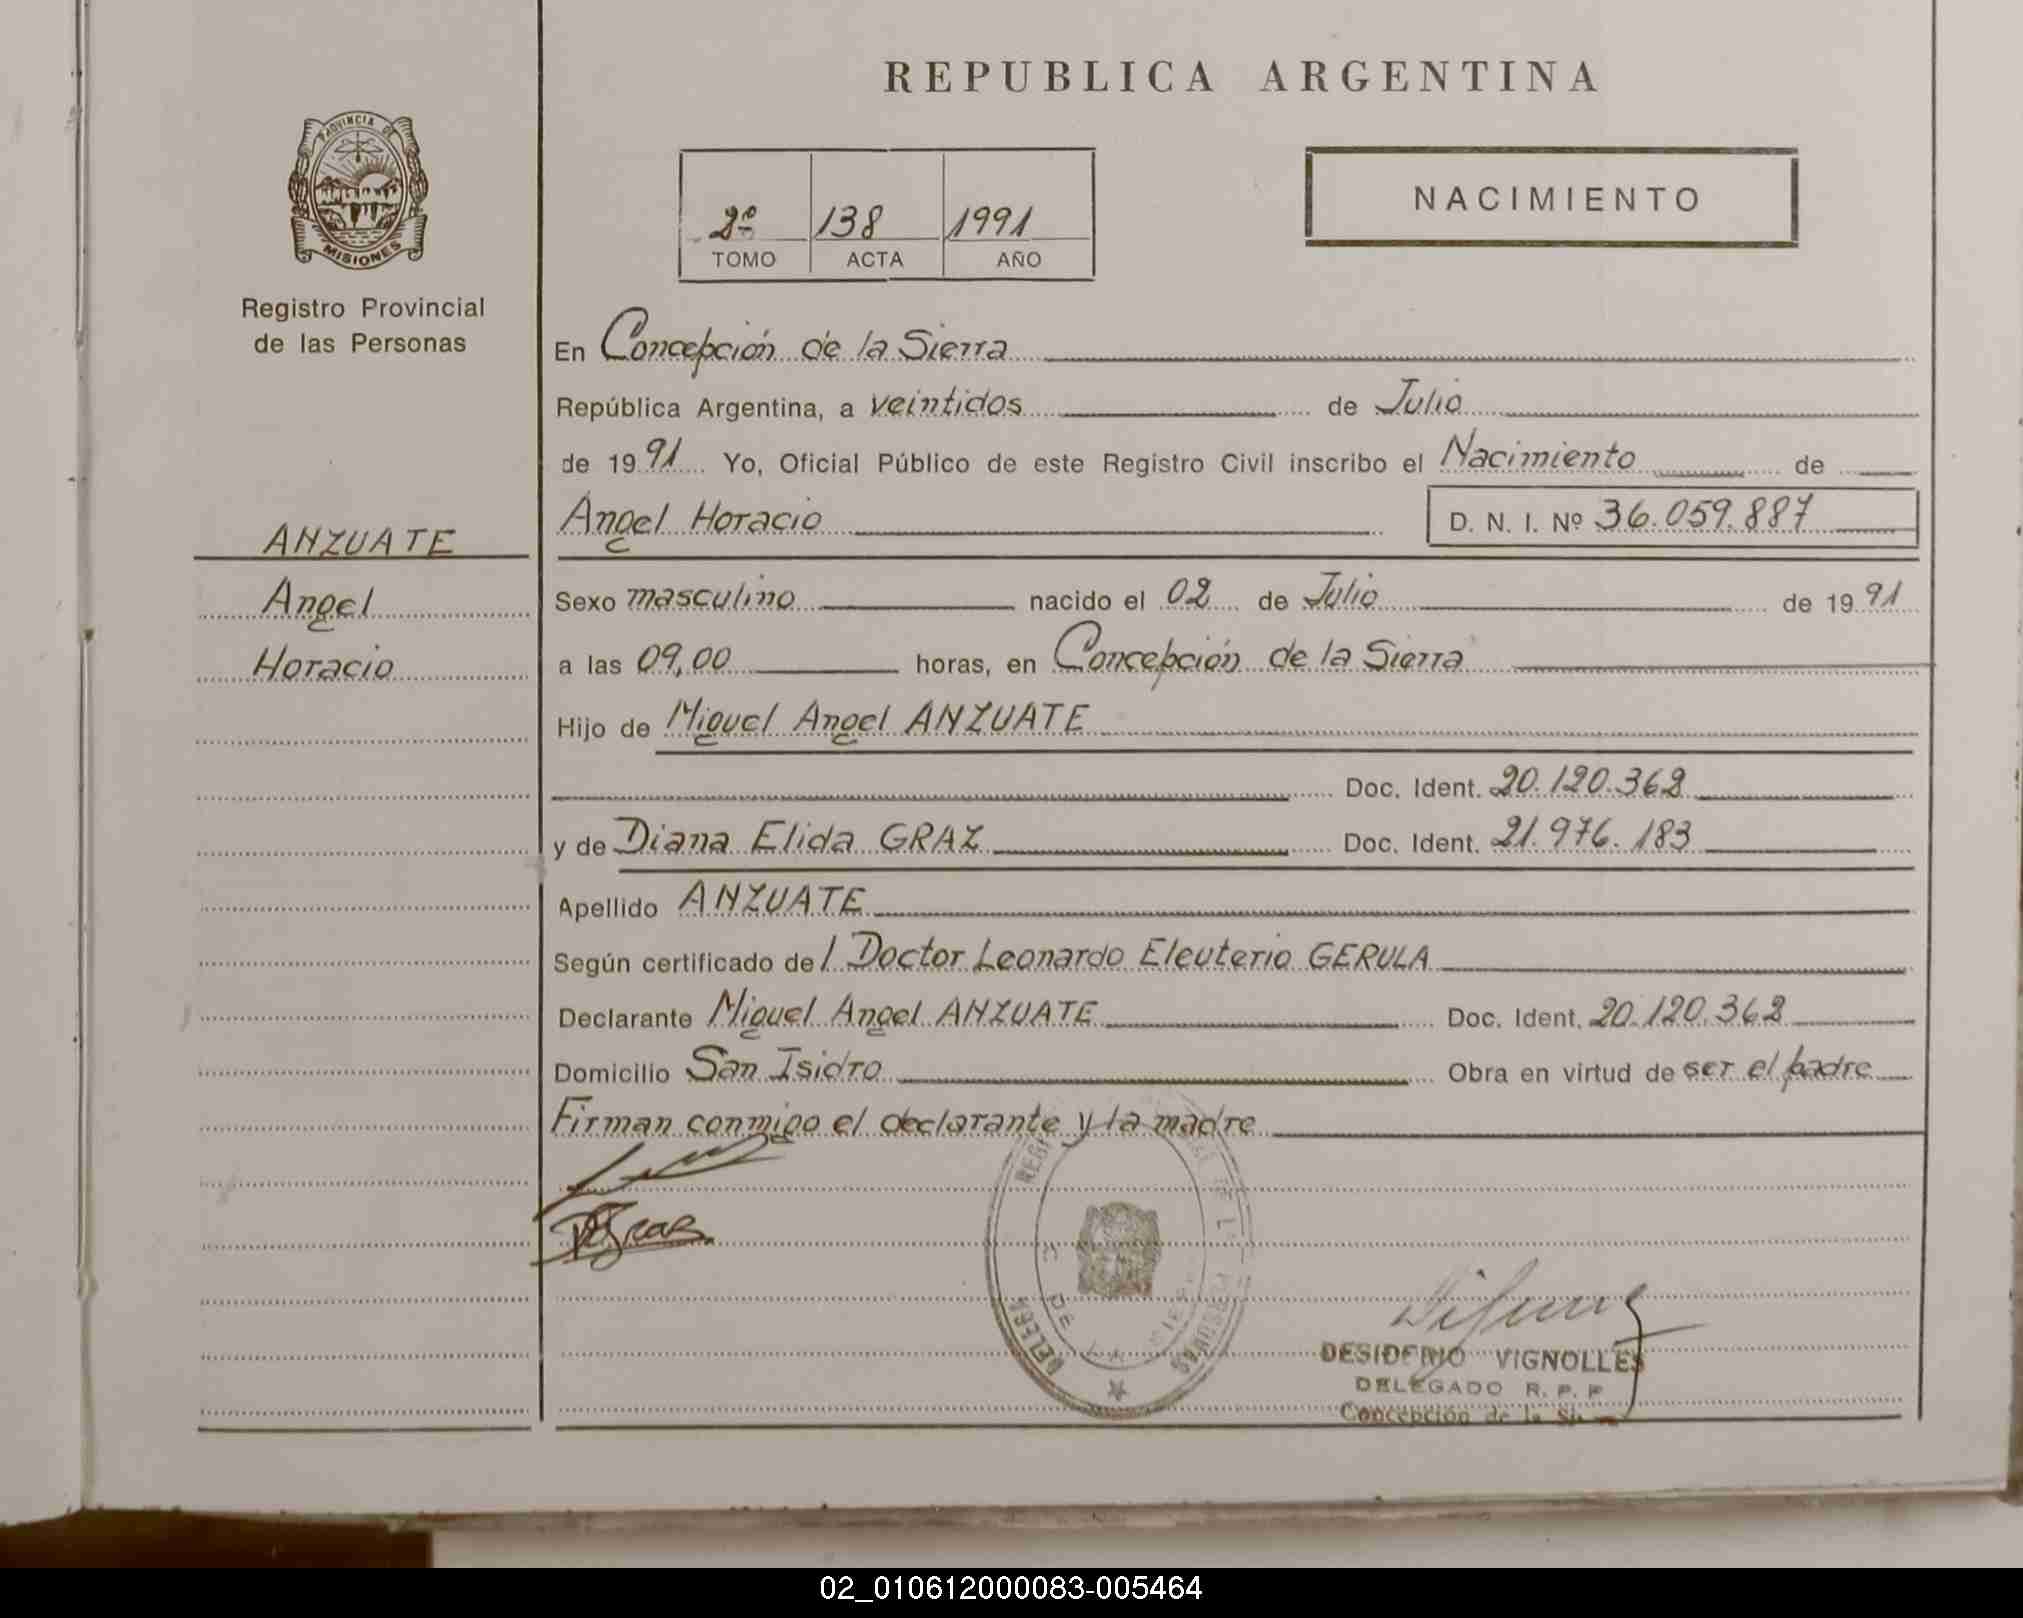 REPUBLICA ARGENTINA
PROVINCIA DE
MISIONES
Registro Provincial
de las Personas
2º 138 1991
TOMO ACTA AÑO
NACIMIENTO
En Concepción de la Sierra
República Argentina, a veintidos de Julio
de 1991 Yo, Oficial Público de este Registro Civil inscribo el Nacimiento de
Angel Horacio D. N. I. Nº 36.059.887
ANZUATE
Angel
Horacio
Sexo masculino nacido el 02 de Julio de 1991
a las 09,00 horas, en Concepción de la Sierra
Hijo de Miguel Angel ANZUATE
Doc. Ident. 20.120.362
y de Diana Elida GRAZ Doc. Ident. 21.976.183
Apellido ANZUATE
Según certificado del Doctor Leonardo Eleuterio GERULA
Declarante Miguel Angel ANZUATE Doc. Ident. 20.120.362
Domicilio San Isidro Obra en virtud de ser el padre
Firman conmigo el declarante y la madre
DESIDERIO VIGNOLLES
DELEGADO R. P. P
Concepción de la
02_010612000083-005464